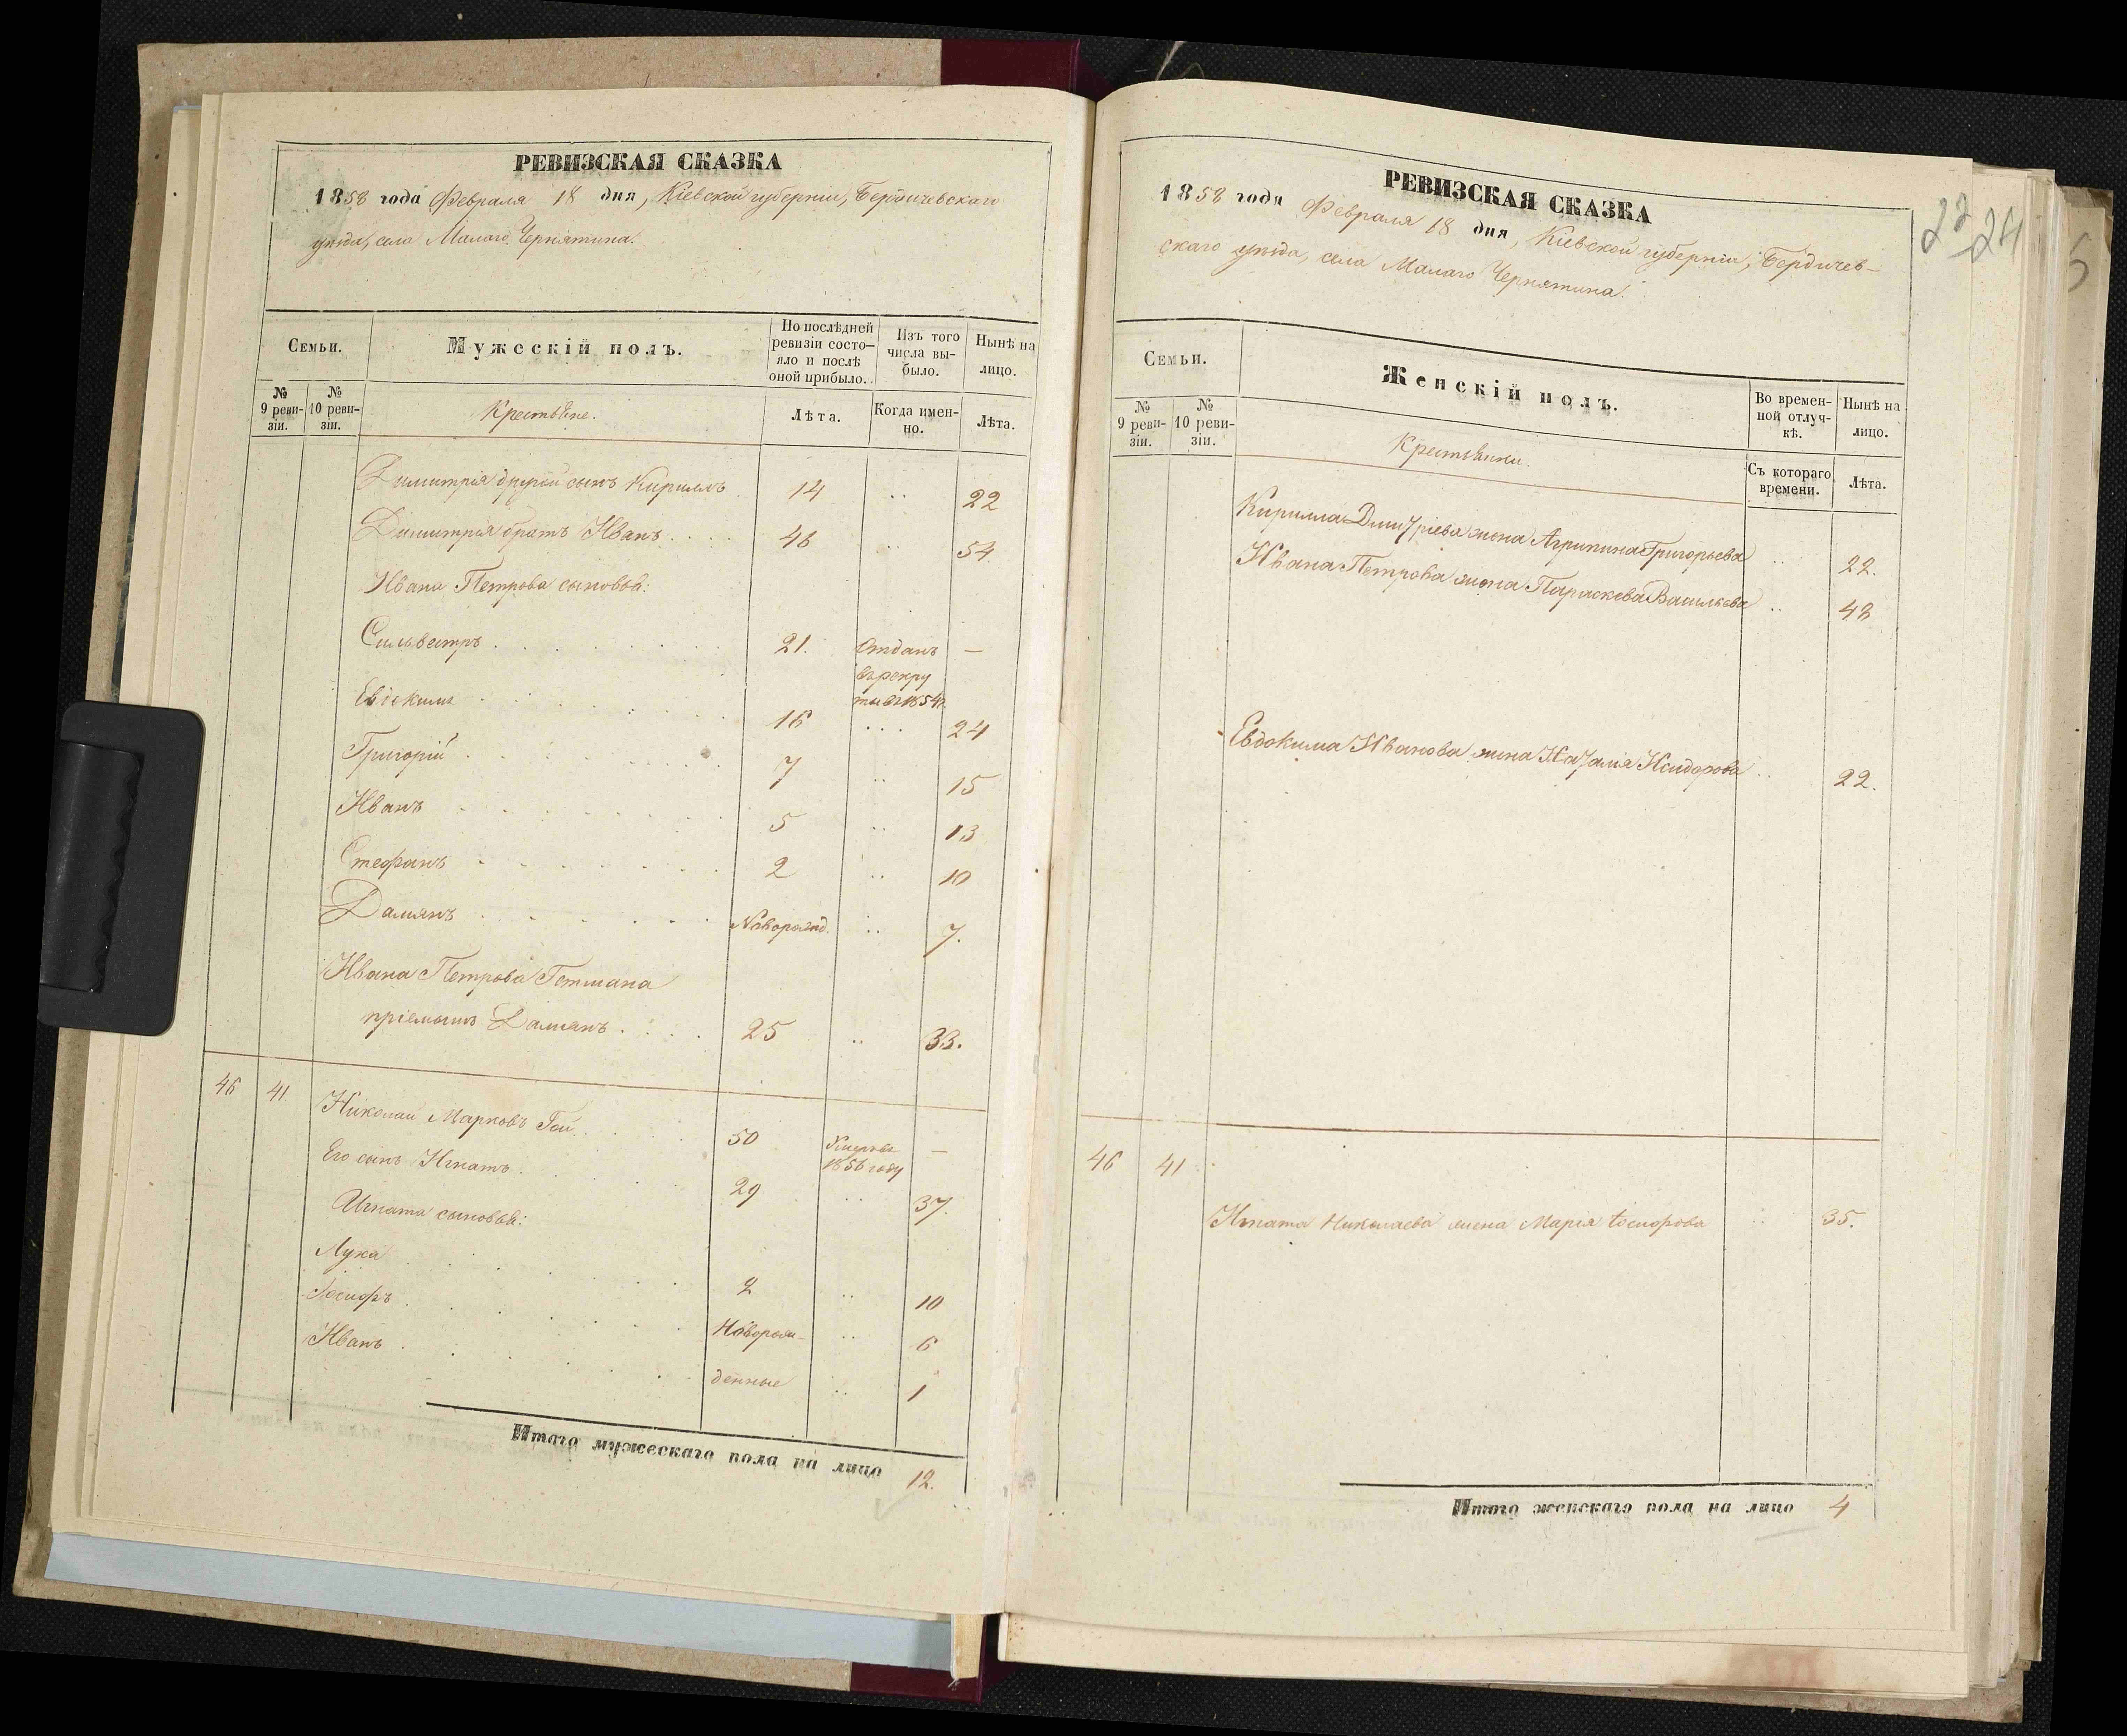 РЕВИЗСКАЯ СКАЗКА
1858 года Февраля 18 дня, Кіевской губерніи, Бердичевскаго
уѣзда, села Малаго Чернятина.
Семьи.
Мужескій полъ.
По послѣдней ревизіи состо-яло и послѣ оной прибыло.
Изъ того числа вы-было.
Нынѣ на лицо.
№ 9 реви-зіи.
№ 10 реви-зіи.
Крестьяне.
Лѣта.
Когда имен-но.
Лѣта.
Димитрія другой сынъ Кириллъ 14 .. 22
Димитрія братъ Иванъ 46 .. 54
Ивана Петрова сыновья:
Сильвестръ 21. Отданъ —
въ рекру
ты въ 1854 г.
Евдокимъ 16 ... 24
Григорій 7 .. 15
Иванъ 5 .. 13
Стефанъ 2 .. 10
Даміянъ Новорожд. .. 7.
Ивана Петрова Гетмана
пріемышъ Даміянъ 25 .. 33.
46 41 Николай Марковъ Гай 50 Умеръ въ —
1856 году
Его сынъ Игнатъ 29 .. 37.
Игната сыновья:
Лука 2 .. 10
Іосифъ Наворож- .. 6
Иванъ денные .. 1
Итого мужескаго пола на лицо 12.
22
24
5
РЕВИЗСКАЯ СКАЗКА
1858 года Февраля 18 дня, Кіевской губерніи, Бердичев-
скаго уѣзда, села Малаго Чернятина.
Семьи.
Женскій полъ.
Во времен-ной отлуч-кѣ.
Нынѣ на лицо.
№ 9 реви-зіи.
№ 10 реви-зіи.
Крестьянки.
Съ котораго времени.
Лѣта.
Кирилла Димитріева жена Агрипина Григорьева .. 22.
Ивана Петрова жена Параскева Васильева .. 48
Евдокима Иванова жена Наталія Исидорова .. 22.
46 41
Игната Николаева жена Марія .. 35.
Итого женскаго пола на лицо 4